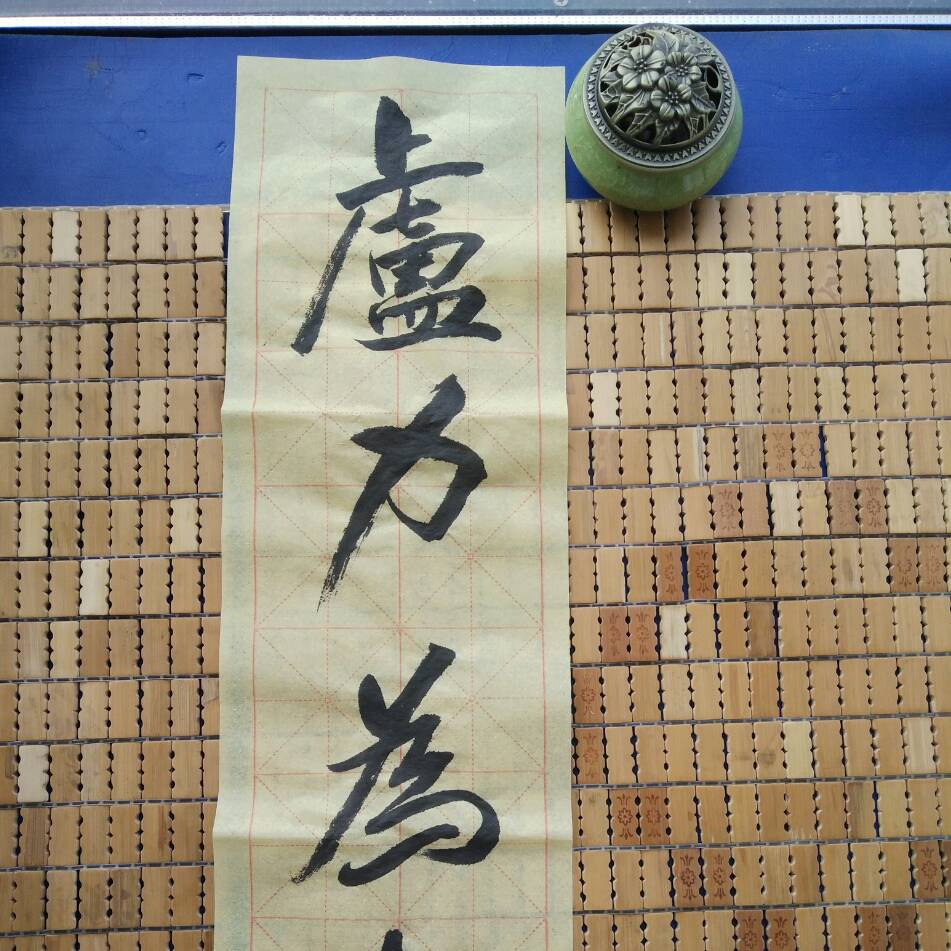 盧力為